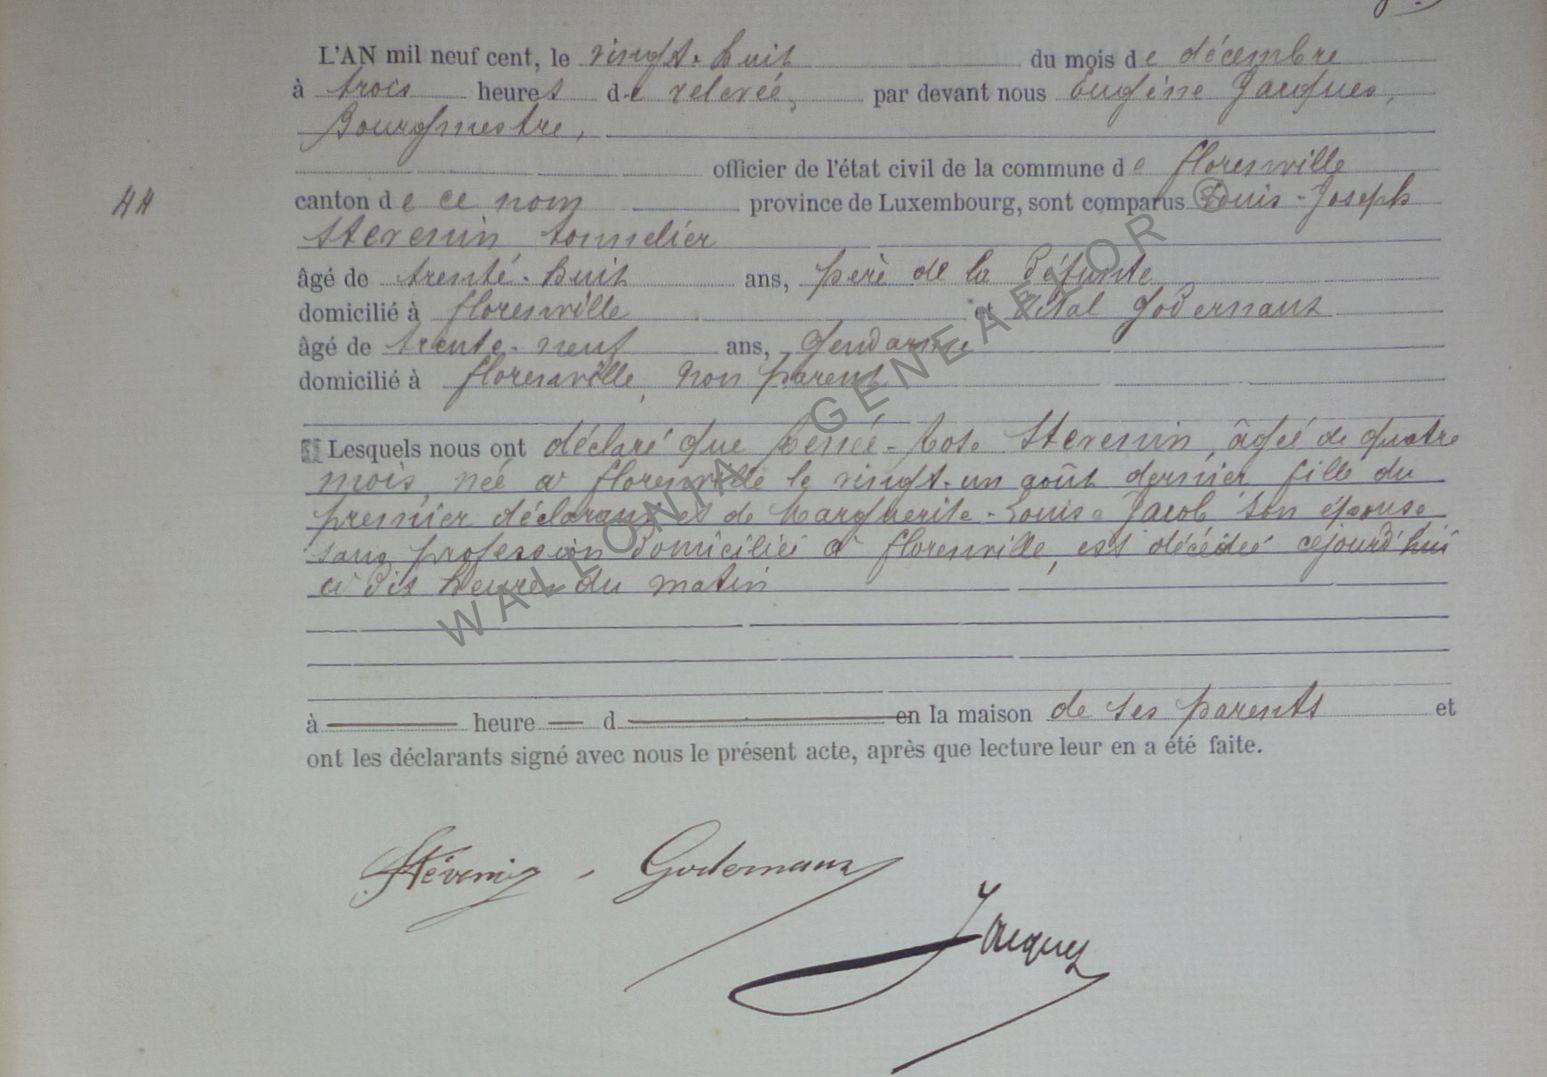 L'AN mil neuf cent, le vingt-huit du mois de décembre
à trois heures de relevée, par devant nous Eugène Jacques,
Bourgmestre,
officier de l'état civil de la commune de florenville
44
canton de ce nom province de Luxembourg, sont comparus Louis-Joseph
Stevenin tonnelier
âgé de trente-huit ans, père de la défunte
domicilié à florenville et Vital Godernaux
âgé de trente-neuf ans, Gendarme
domicilié à florenville, non parent
Lesquels nous ont déclaré que Renée-Rose Stevenin, âgée de quatre
mois, née à florenville le vingt-un août dernier fille du
premier déclarant et de Marguerite-Louise Jacob son épouse
sans profession domiciliée à florenville, est décédée cejourd'hui
à dix heures du matin
à heure d en la maison de ses parents et
ont les déclarants signé avec nous le présent acte, après que lecture leur en a été faite.
Stévenin - Godernaux
Jacques
WALLONIA GENEAFLOR ®